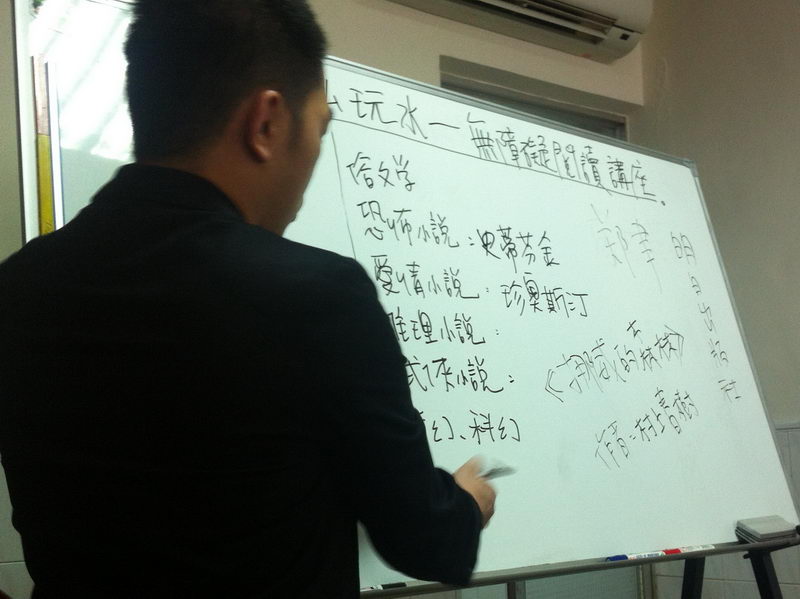 山玩水－無障礙閱讀講座。
哈文学
恐怖小說：史蒂芬金
愛情小說：珍奧斯汀
推理小說：
武侠小說：
幻、科幻
明日出版社
《挪威的森林》
作者：村上春樹